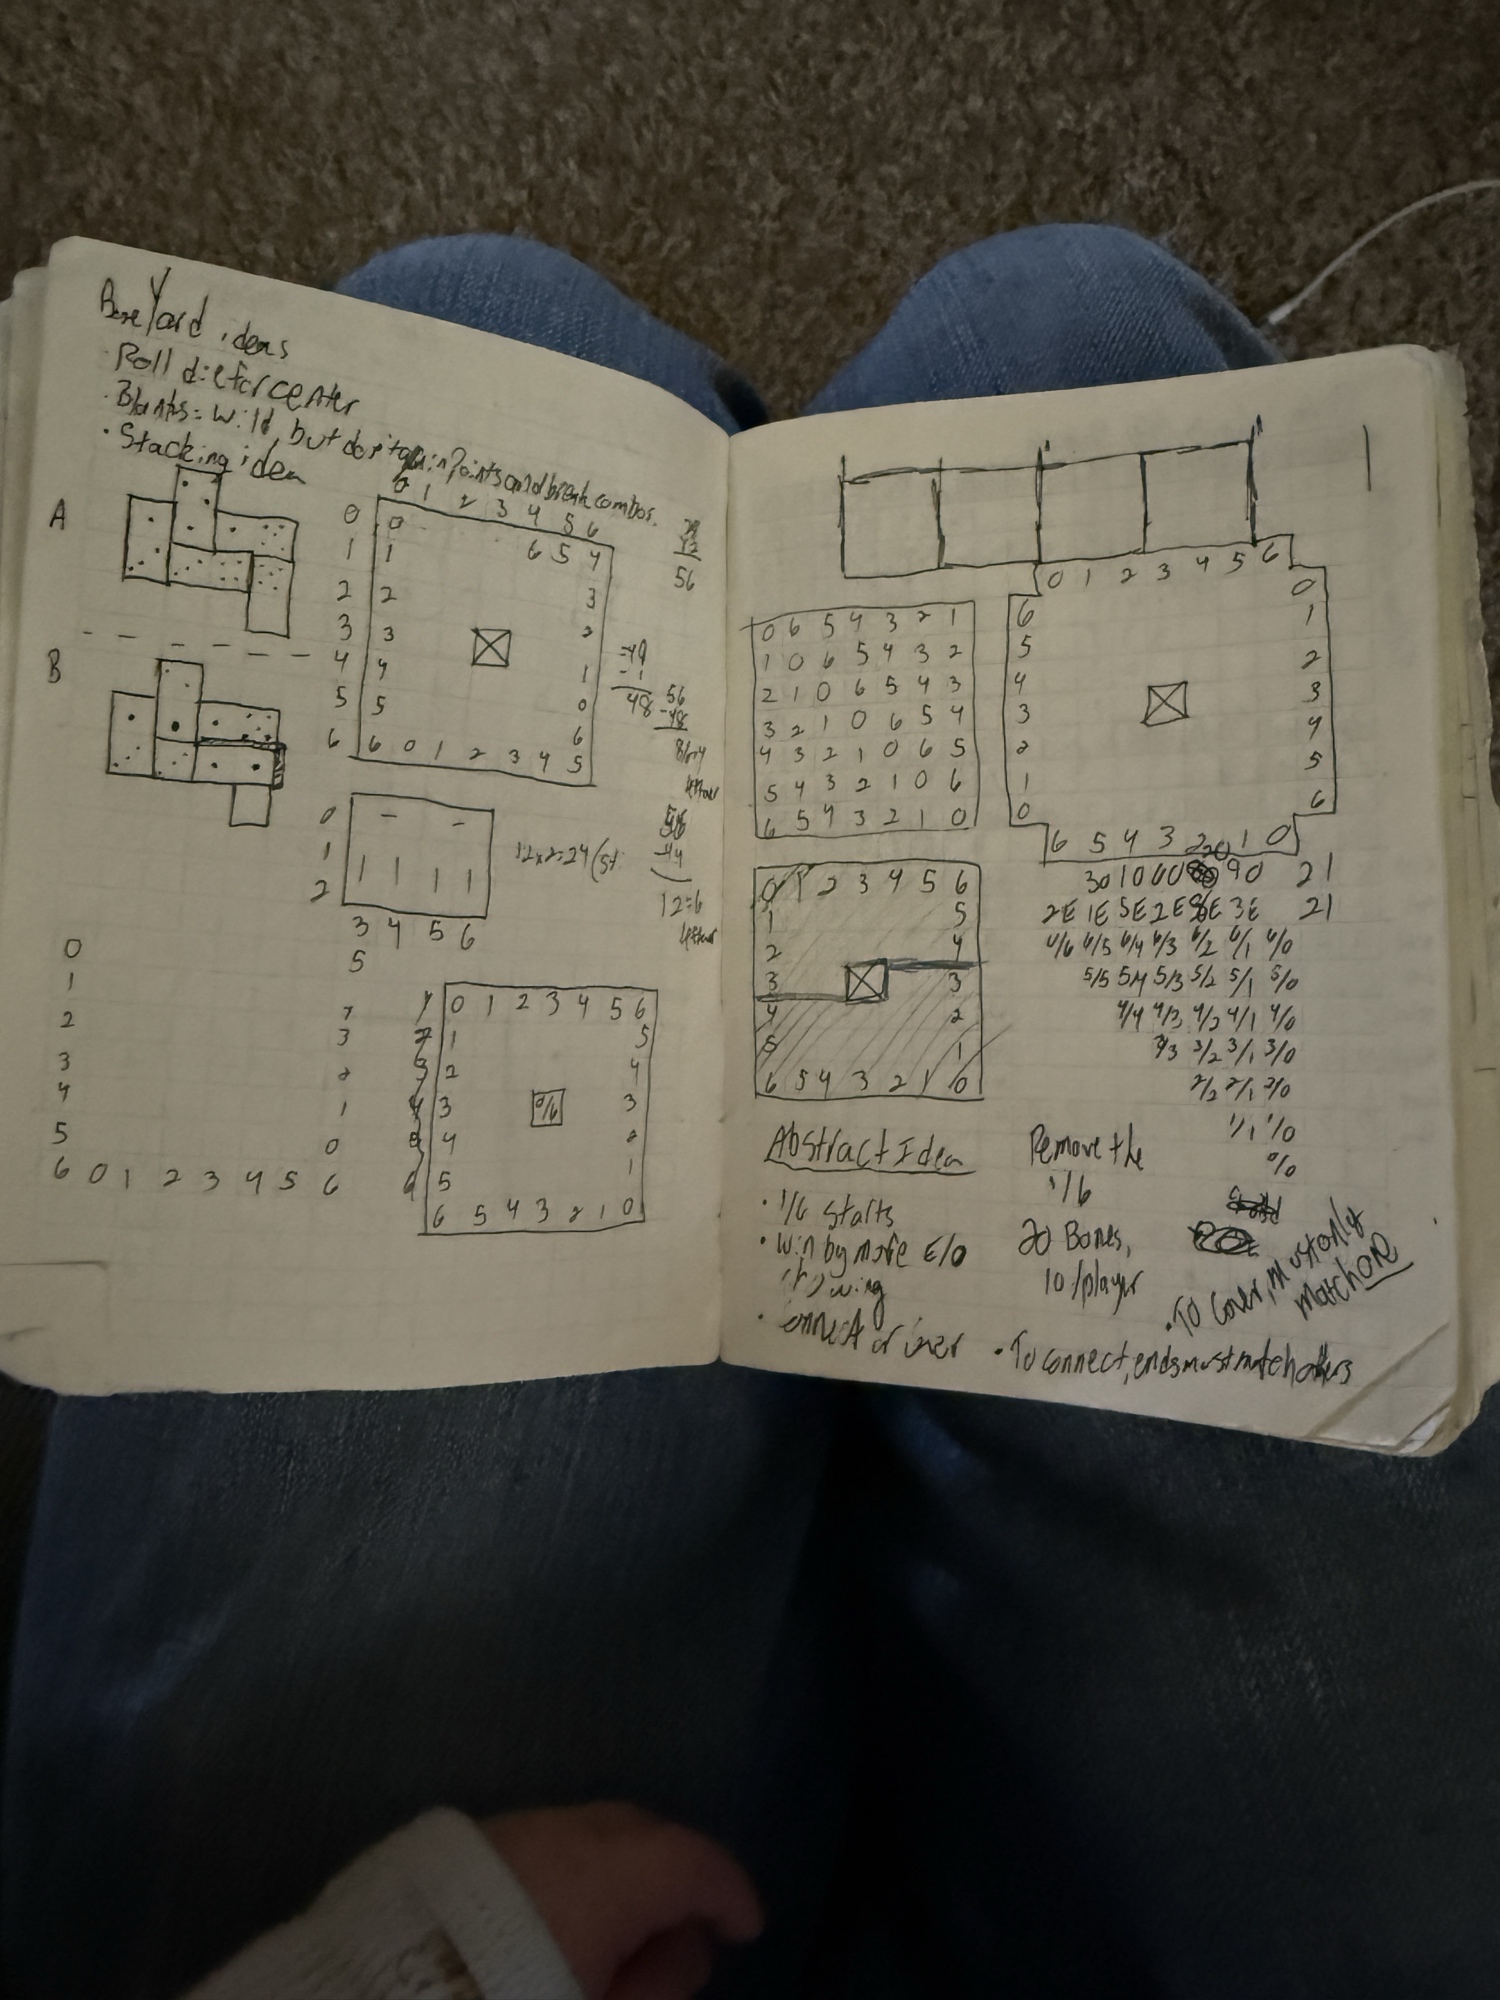 BoneYard ideas
· Roll die for center
· Blanks = wild, but don't gain points and break combos.
· Stacking idea
A
0 1 2 3 4 5 6
0 0
1 1 6 5 4
2 2 3
3 3 2
4 4 1
5 5 0
6
6 6 0 1 2 3 4 5
56
B
49
- 1
48
56
-48
8
0
1
2
3 4 5 6
5
12x2=24
56
-44
12=6
0
1
2
3
4
5
6 0 1 2 3 4 5 6
3
2
1
0
0 1 2 3 4 5 6
1 5
2 4
3 0/6 3
4 2
5 1
6 5 4 3 2 1 0
0 1 2 3 4 5 6
6 0
5 1
4 2
3 3
2 4
1 5
0 6
6 5 4 3 2 1 0
0 6 5 4 3 2 1
1 0 6 5 4 3 2
2 1 0 6 5 4 3
3 2 1 0 6 5 4
4 3 2 1 0 6 5
5 4 3 2 1 0 6
6 5 4 3 2 1 0
0 1 2 3 4 5 6
1 5
2 4
3 3
4 2
5 1
6 5 4 3 2 1 0
3O 1O 6O 2O 9O 21
2E 1E 5E 2E 8E 3E 21
6/6 6/5 6/4 6/3 6/2 6/1 6/0
5/5 5/4 5/3 5/2 5/1 5/0
4/4 4/3 4/2 4/1 4/0
3/3 3/2 3/1 3/0
2/2 2/1 2/0
1/1 1/0
0/0
Abstract Idea
· 1/6 starts
· Win by more E/O
showing
· connect or cover
Remove the
1/6
20 Bones,
10/player
· To cover, must only
match one
· To connect, ends must match others